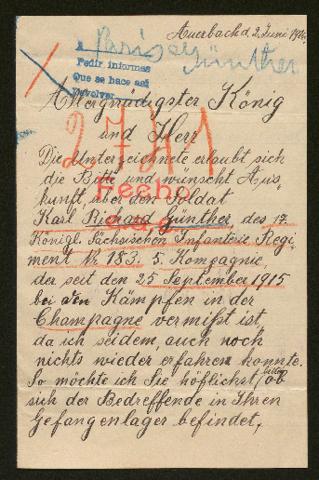 Auerbach d. 2. Juni 1916.
A Paris y
Günther
Pedir informes
Que se hace así
Devolver
Allergnädigster König
und Herr
27 A 1
Die Unterzeichnete erlaubt sich
die Bitte und wünscht Aus-
kunft, über den Soldat
Fecho
Karl Richard Günther, des 17.
Königl. Sächsischen Infanterie Regi-
ment № 183. 5. Kompagnie
der seit den 25 September 1915
bei den Kämpfen in der
Champagne vermißt ist
da ich seidem, auch noch
nichts wieder erfahren konnte.
So möchte ich Sie höflichst bitten ob
sich der Bedreffende in Ihren
Gefangenlager befindet.